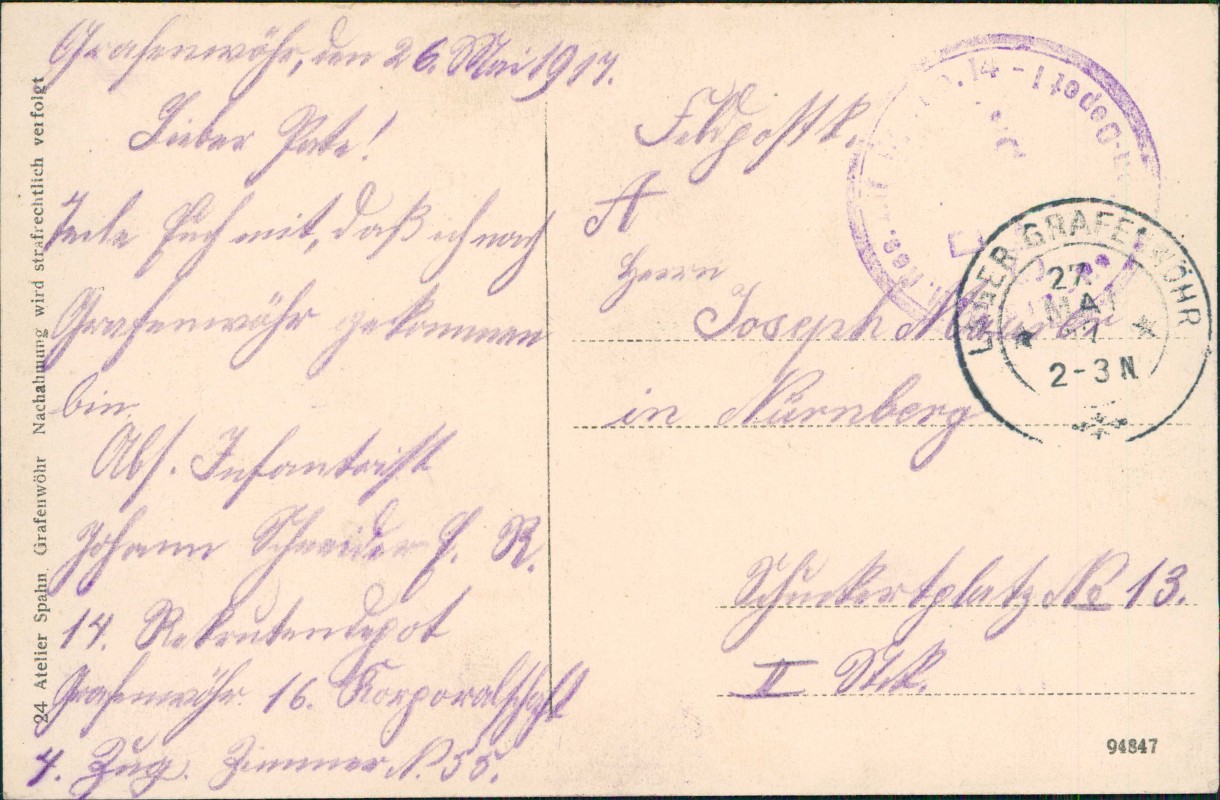 Grafenwöhr, den 26. Mai 1917.
Lieber Pate!
Teile Euch mit, daß ich nach
Grafenwöhr gekommen
bin.
Abs. Infantrist
Johann Schneider E. R.
14. Rekrutendepot
Grafenwöhr. 16. Korporalschaft
4. Zug. Zimmer N. 55.
24 Atelier Spahn, Grafenwöhr Nachahmung wird strafrechtlich verfolgt
Feldpostk.
A
Herrn
Joseph
in Nürnberg
Schuckertplatz No 13.
II Stk.
14
LAGER GRAFENWÖHR
27
MAI
17
2-3 N
94847